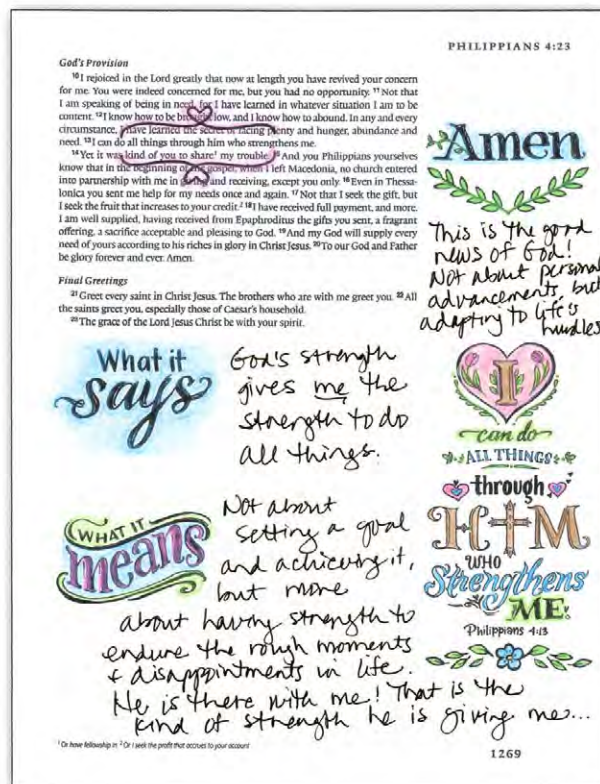 PHILIPPIANS 4:23
God's Provision
10 I rejoiced in the Lord greatly that now at length you have revived your concern
for me. You were indeed concerned for me, but you had no opportunity. 11 Not that
I am speaking of being in need, for I have learned in whatever situation I am to be
content. 12 I know how to be brought low, and I know how to abound. In any and every
circumstance, I have learned the secret of facing plenty and hunger, abundance and
need. 13 I can do all things through him who strengthens me.
14 Yet it was kind of you to share1 my trouble. 15 And you Philippians yourselves
know that in the beginning of the gospel, when I left Macedonia, no church entered
into partnership with me in giving and receiving, except you only. 16 Even in Thessa-
lonica you sent me help for my needs once and again. 17 Not that I seek the gift, but
I seek the fruit that increases to your credit.2 18 I have received full payment, and more.
I am well supplied, having received from Epaphroditus the gifts you sent, a fragrant
offering, a sacrifice acceptable and pleasing to God. 19 And my God will supply every
need of yours according to his riches in glory in Christ Jesus. 20 To our God and Father
be glory forever and ever. Amen.
Final Greetings
21 Greet every saint in Christ Jesus. The brothers who are with me greet you. 22 All
the saints greet you, especially those of Caesar's household.
23 The grace of the Lord Jesus Christ be with your spirit.
Amen
This is the good
news of God!
Not about personal
advancements, but
adapting to life's
hurdles
What it
says
God's strength
gives me the
strength to do
all things.
WHAT IT
means
Not about
setting a goal
and achieving it,
but more
about having strength to
endure the rough moments
+ disappointments in life.
He is there with me! That is the
kind of strength he is giving me...
I
can do
ALL THINGS
through
HIM
WHO
Strengthens
ME.
Philippians 4:13
1 Or have fellowship in 2 Or I seek the profit that accrues to your account
1269